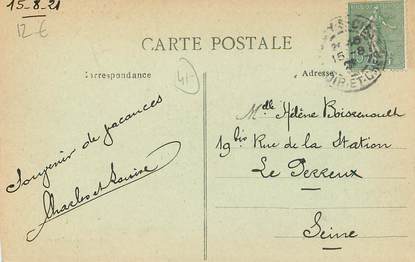 15-8-21
12 €
CARTE POSTALE
Correspondance
41
Adresse
Souvenir de vacances
Charles et Louise
Melle Hélène Boissenoult
19 bis Rue de la Station
Le Perreux
Seine
LOIR-ET-CHER